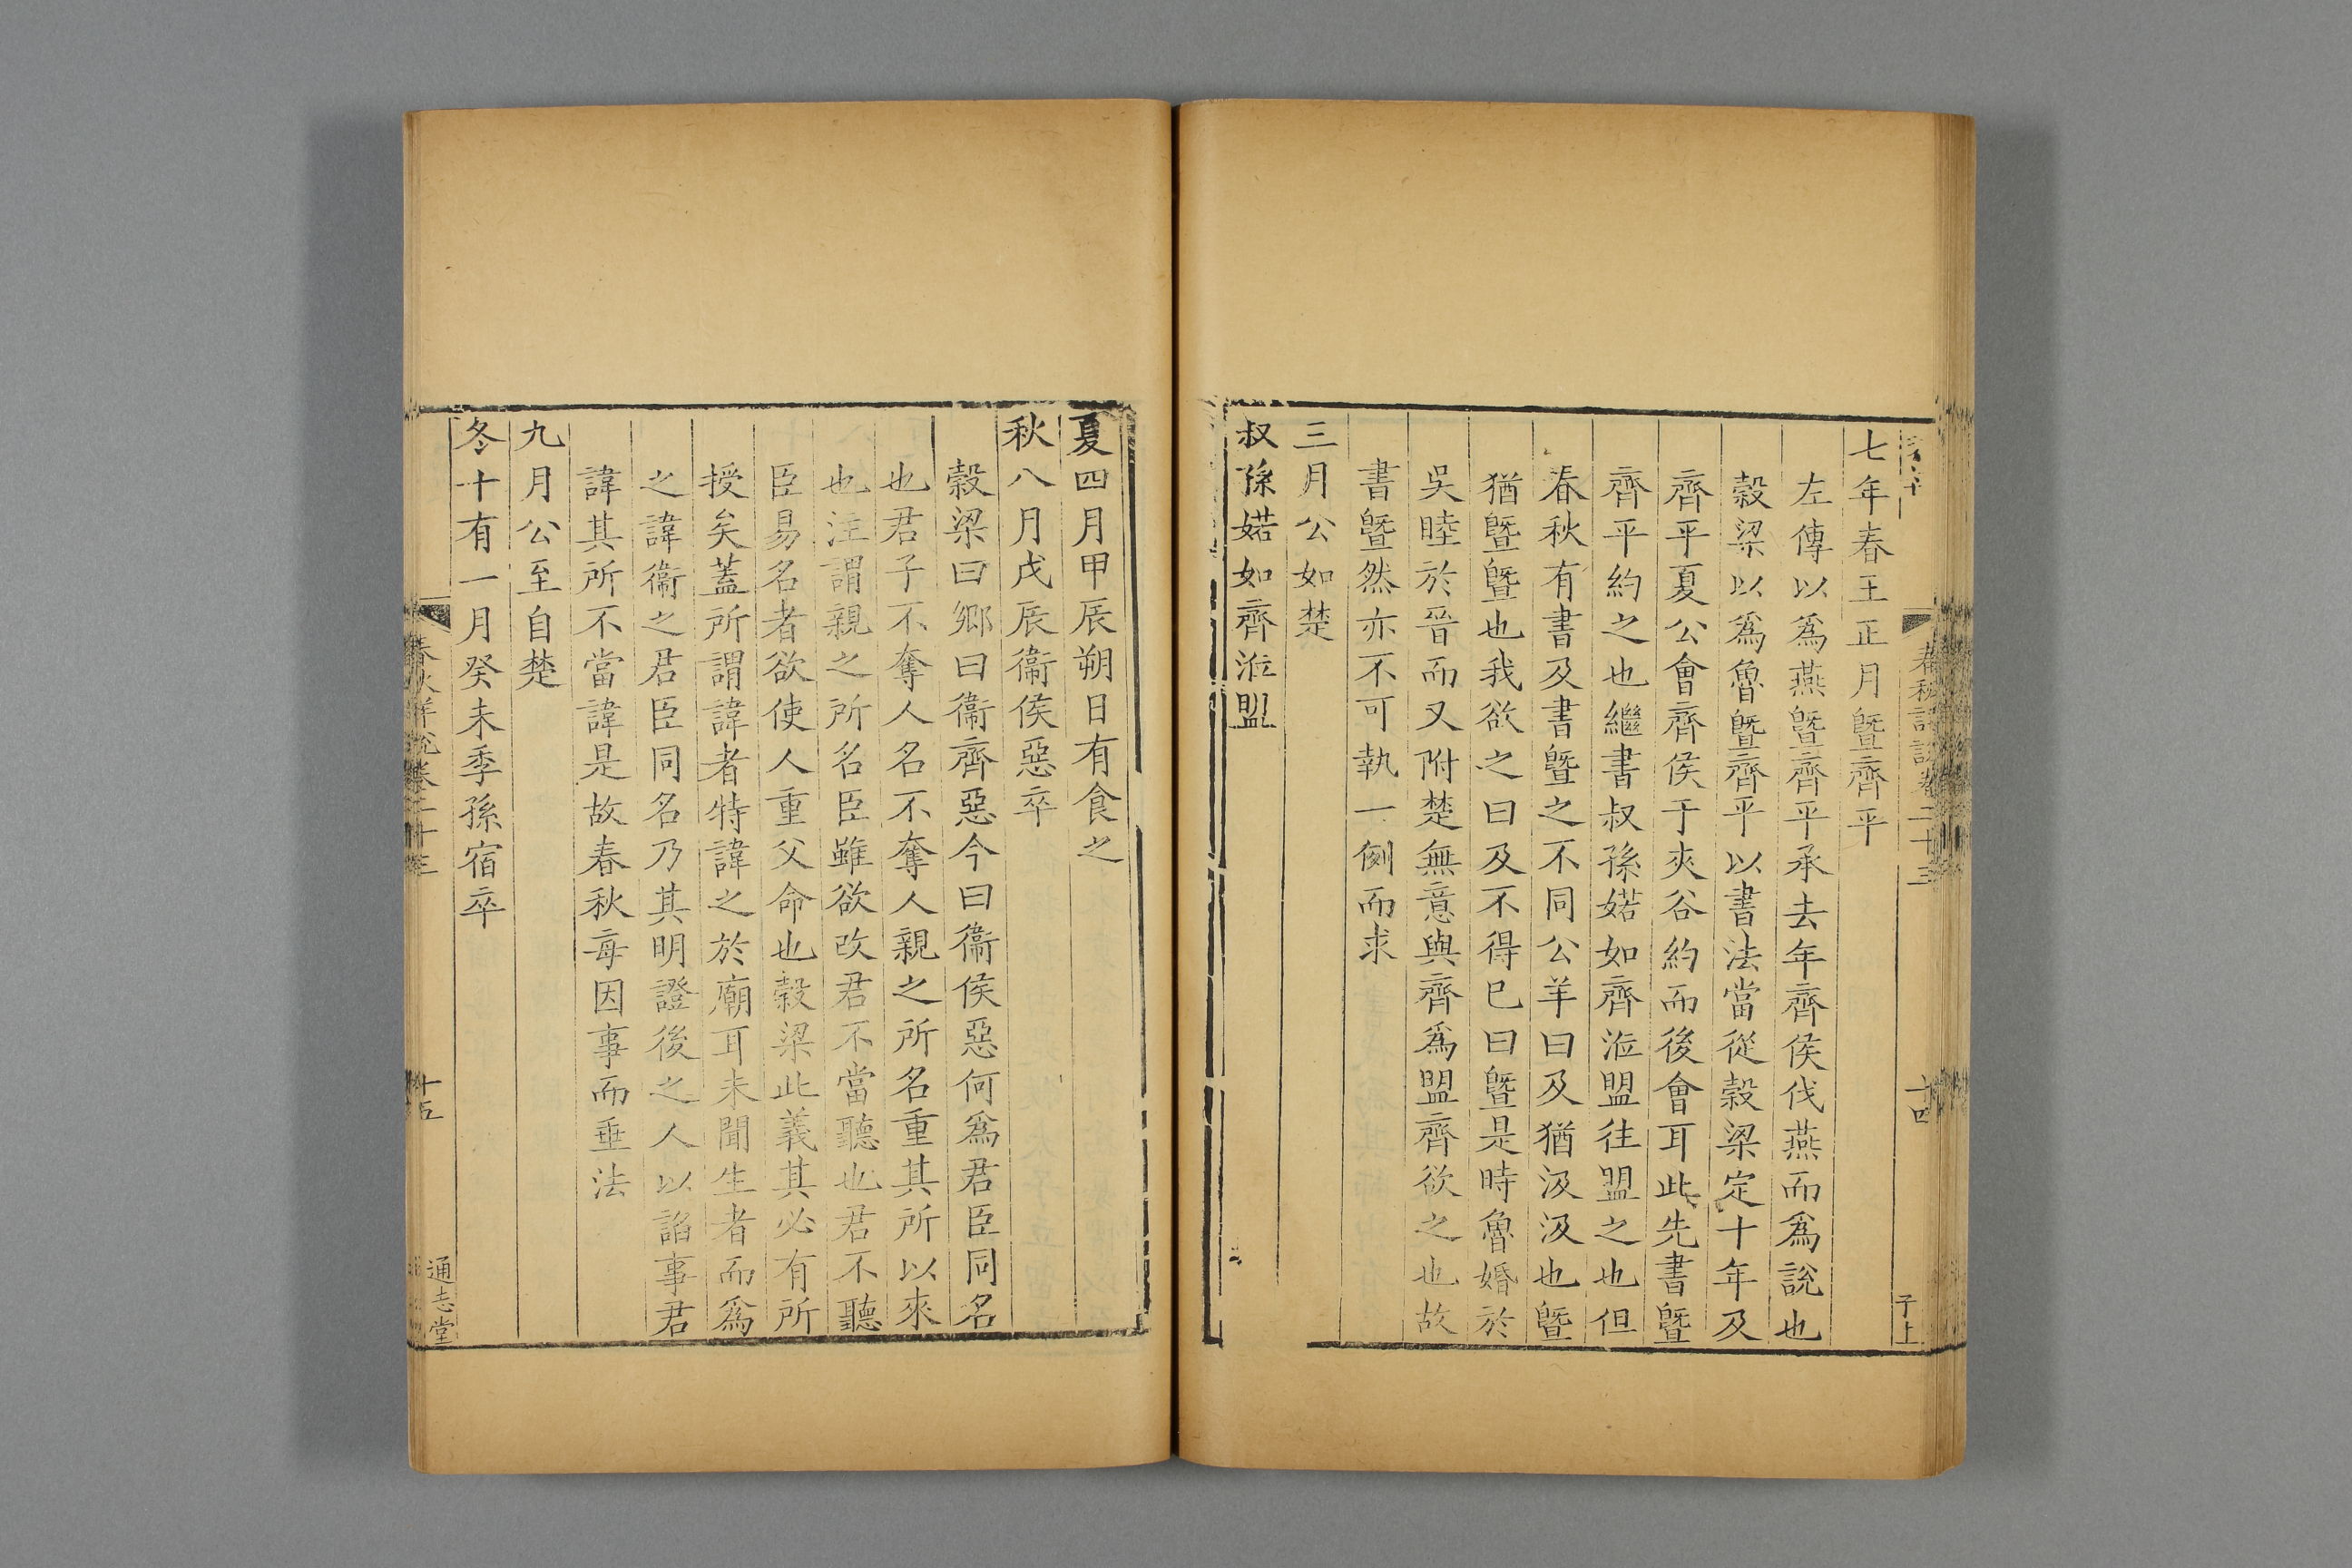 七年春王正月暨齊平
左傳以爲燕暨齊平承去年齊侯伐燕而爲說也
榖梁以爲魯暨齊平以書法當從榖梁定十年及
齊平夏公會齊侯于夾谷約而後會耳此先書暨
齊平約之也繼書叔孫婼如齊涖盟往盟之也但
春秋有書及書暨之不同公羊曰及猶汲汲也暨
猶暨暨也我欲之曰及不得已曰暨是時魯婚於
吳睦於晉而又附楚無意與齊爲盟齊欲之也故
書暨然亦不可執一例而求
三月公如楚
叔孫婼如齊涖盟
春秋詳說卷二十三
十四
子上
夏四月甲辰朔日有食之
秋八月戊辰衞侯惡卒
榖梁曰鄉曰衞齊惡今曰衞侯惡何爲君臣同名
也君子不奪人名不奪人親之所名重其所以來
也注謂親之所名臣雖欲改君不當聽也君不聽
臣易名者欲使人重父命也榖梁此義其必有所
授矣蓋所謂諱者特諱之於廟耳未聞生者而爲
之諱衞之君臣同名乃其明證後之人以諂事君
諱其所不當諱是故春秋每因事而垂法
九月公至自楚
冬十有一月癸未季孫宿卒
春秋詳說卷二十三
十五
通志堂